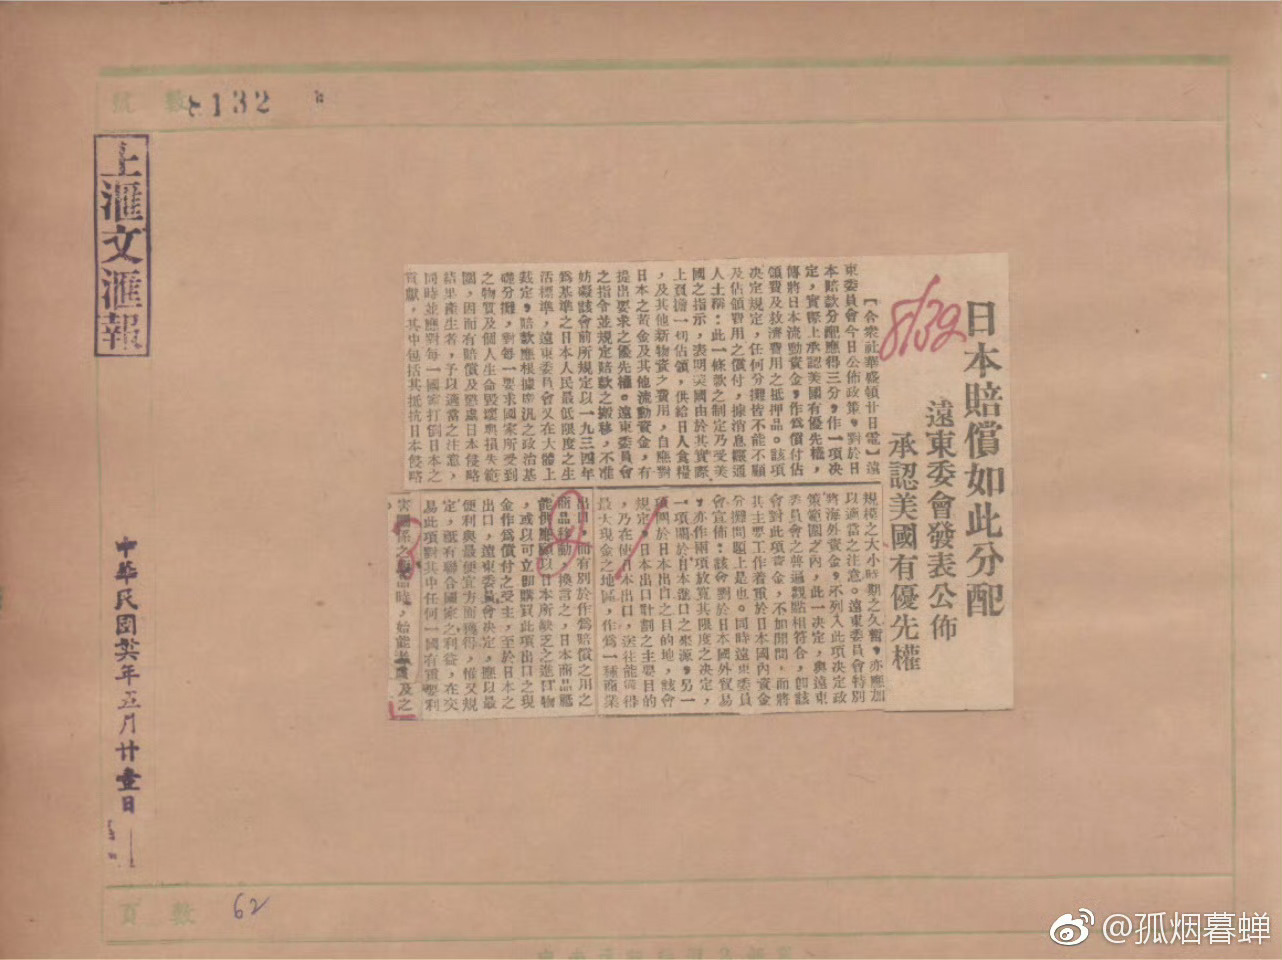 號數
132
上滙文滙報
中華民國卅六年五月廿壹日
8/39
日本賠償如此分配
遠東委員會發表公佈
承認美國有優先權
【合衆社華盛頓廿日電】遠
東委員會今日公佈政策，對於日
本賠款分配應得三分，作一項决
定，實際上承認美國有優先權，
俾將日本流動資金，作爲償付佔
領費及救濟費用之抵押品。該項
决定規定，任何分攤皆不能不顧
及佔領費用之償付，據消息靈通
人士稱：此一條款之制定乃受美
國之指示，表明美國由於其實際
上負擔一切佔領，供給日人食糧
，及其他新物資之費用，自應對
日本之黃金及其他流動資金，有
提出要求之優先權。遠東委員會
之指令並規定賠款之搬移，不准
妨礙該會前所規定以一九三四年
爲基準之日本人民最低限度之生
活標準，遠東委員會又在大體上
裁定，賠款應根據廣汎之政治基
礎分攤，對每一要求國家所受到
之物質及個人生命毀壞與損失範
圍，因而有賠償及懲處日本侵略
結果產生者，予以適當之注意，
同時並應對每一國家打倒日本之
貢獻，其中包括其抵抗日本侵略
規模之大小時期之久暫，亦應加
以適當之注意。遠東委員會特別
將海外資金，不列入此項决定政
策範圍之內，此一决定，與遠東
委員會之普遍觀點相符合，卽該
會對此項資金，不加聞問，而將
其主要工作着重於日本國內資金
分攤問題上是也。同時遠東委員
會宣佈：該會對於日本國外貿易
，亦作兩項放寬其限度之决定，
一項關於日本進口之來源，另一
項關於日本出口之目的地，該會
規定，日本出口計劃之主要目的
，乃在使日本出口，送往能獲得
最大現金之地區，作爲一種商業
出口，而有別於作爲賠償之用之
商品移動，換言之，日本商品祗
能供應願以日本所缺乏之進口物
，或以可立卽購買此項出口之現
金作爲償付之受主，至於日本之
出口，遠東委員會决定，應以最
便利與最便宜方面獲得，惟又規
定，祗有聯合國家之利益，在交
易此項對其中任何一國有重要利
害關係之商品時，始能考慮及之
頁數
62
@孤烟暮蝉